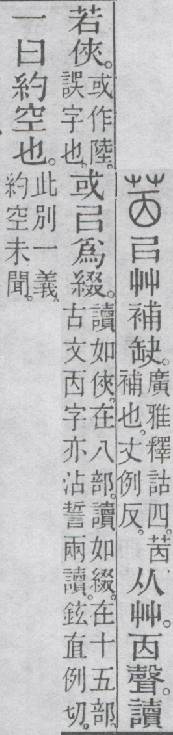 㠯艸補缺。廣雅釋詁四。補也。丈例反。从艸。㐁聲。讀
若俠。或作陸。誤字也。或㠯爲綴。讀如俠。在八部。讀如綴。在十五部。古文㐁字亦沾誓兩讀。鉉直例切。
一曰約空也。此別一義。約空未聞。